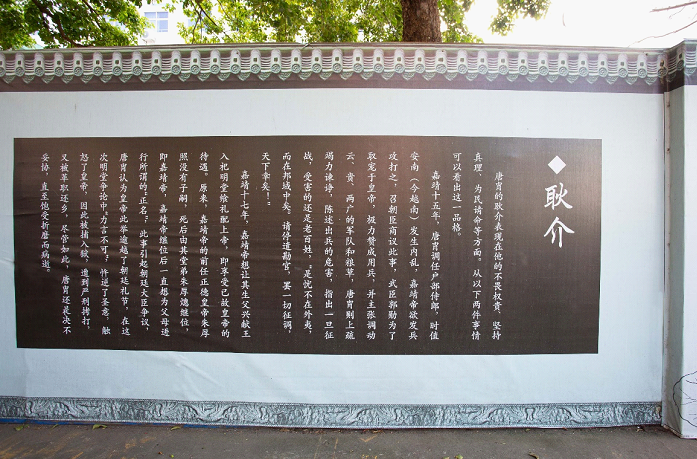 ◆耿介
唐胄的耿介表现在他的不畏权贵、坚持
真理、为民请命等方面。从以下两件事情
可以看出这一品格。
嘉靖十五年，唐胄调任户部侍郎，时值
安南（今越南）发生内乱，嘉靖帝欲发兵
攻打之，召朝臣商议此事，武臣郭勋为了
取宠于皇帝，极力赞成用兵，并主张调动
云、贵、两广的军队和粮草，唐胄则上疏
竭力谏诤，陈述出兵的危害，指出一旦征
战，受害的还是老百姓，“是忧不在外夷，
而在邦域中矣。请停遣勘官，罢一切征调，
天下幸矣！”
嘉靖十七年，嘉靖帝想让其生父兴献王
入祀明堂飨礼配上帝，即享受已故皇帝的
待遇。原来，嘉靖帝的前任正德皇帝朱厚
照没有子嗣，死后由其堂弟朱厚熜继位，
即嘉靖帝，嘉靖帝继位后一直想为父母进
行所谓的“正名”，此事引起朝廷大臣争议，
唐胄认为皇帝此举逾越了朝廷礼节，在这
次明堂争论中“力言不可”，忤逆了圣意，触
怒了皇帝，因此被捕入狱，遭到严刑拷打，
又被革职还乡，尽管如此，唐胄还是决不
妥协，直至饱受折磨而病逝。